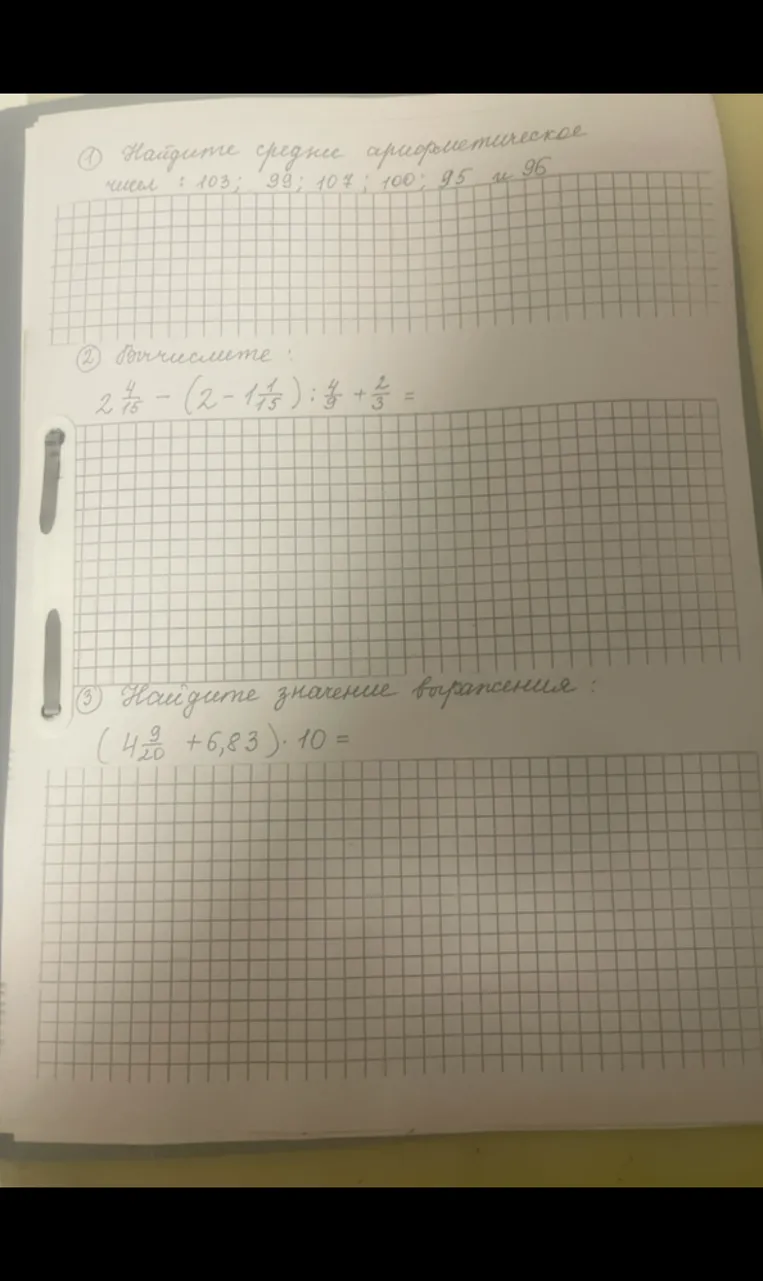 ① Найдите среднее арифметическое
чисел : 103; 99; 107; 100; 95 и 96
② Вычислите :
2 4/15 - (2 - 1 1/15) : 4/9 + 2/3 =
③ Найдите значение выражения :
(4 9/20 + 6,83) · 10 =